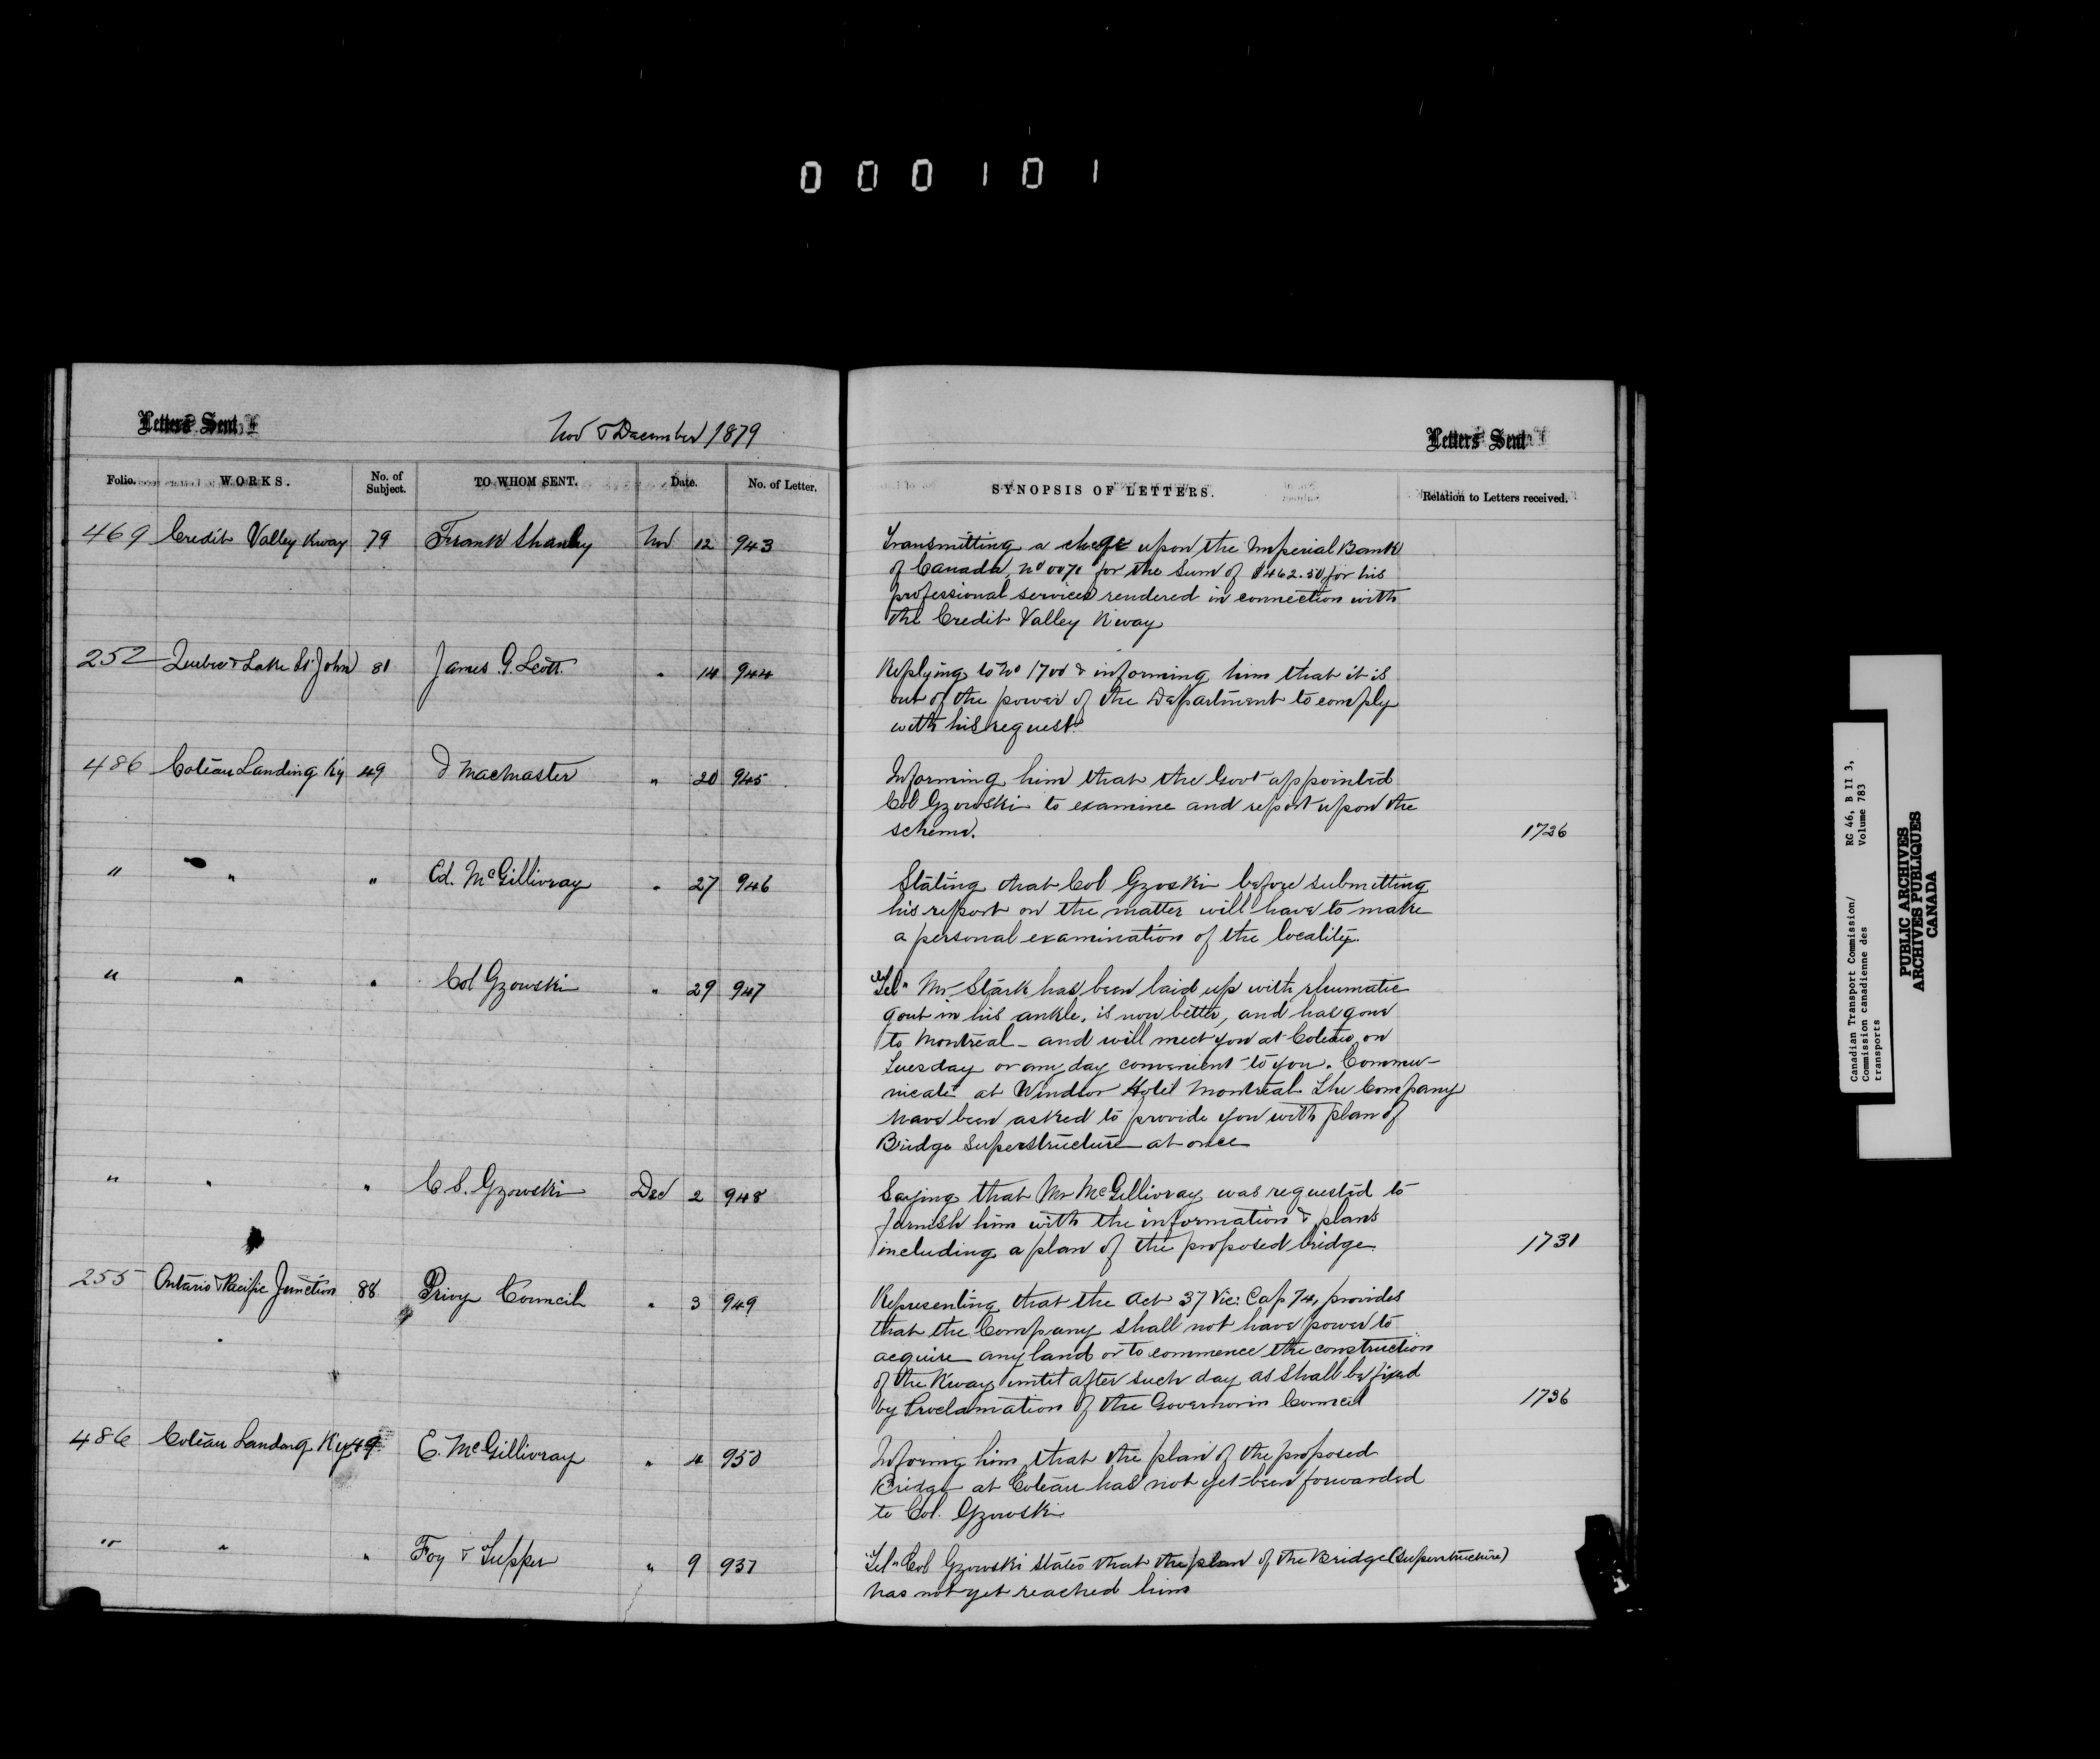 000101
Letters Sent
Nov & December 1879
Letters Sent
Folio. WORKS. No. of Subject. TO WHOM SENT. Date. No. of Letter. SYNOPSIS OF LETTERS. Relation to Letters received.
469 Credit Valley Rway 79 Frank Shanly Nov 12 943 Transmitting a cheqe upon the Imperial Bank
of Canada, No 0070 for the Sum of $462.50 for his
professional services rendered in connection with
the Credit Valley Rway
252 Quebec & Lake St John 81 James G. Scott. " 14 944 Replying to No 1700 & informing him that it is
out of the power of the Department to comply
with his request.
486 Coteau Landing Ry 49 D MacMaster " 20 945 Informing him that the Govt appointed
Col Gzowski to examine and report upon the
scheme. 1726
" " " Ed. McGillivray " 27 946 Stating that Col Gzoski before submitting
his report on the matter will have to make
a personal examination of the locality.
" " " Col Gzowski " 29 947 "Tel" Mr Stark has been laid up with rheumatic
gout in his ankle, is now better, and has gone
to Montreal - and will meet you at Coteau on
Tuesday or any day convenient to you. Commu-
nicate at Windsor Hotel Montreal. The Company
have been asked to provide you with plan of
Bridge Superstructure at once
" " " C S. Gzowski Dec 2 948 Saying that Mr McGillivray was requested to
furnish him with the information & plans
including a plan of the proposed bridge. 1731
255 Ontario & Pacific Junction 88 Privy Council " 3 949 Representing that the Act 37 Vic: Cap 74, provides
that the Company shall not have power to
acquire any land or to commence the construction
of the Rway until after such day as shall be fixed
by Proclamation of the Governor in Council 1736
486 Coteau Landing Ry 49 E. McGillivray " 4 950 Informing him that the plan of the proposed
Bridge at Coteau has not yet been forwarded
to Col. Gzowski
" " " Foy & Tupper " 9 951 "Tel" Col Gzowski states that the plan of the Bridge (Superstructure)
has not yet reached him
Canadian Transport Commission/ RG 46, B II 3,
Commission canadienne des Volume 783
transports
PUBLIC ARCHIVES
ARCHIVES PUBLIQUES
CANADA